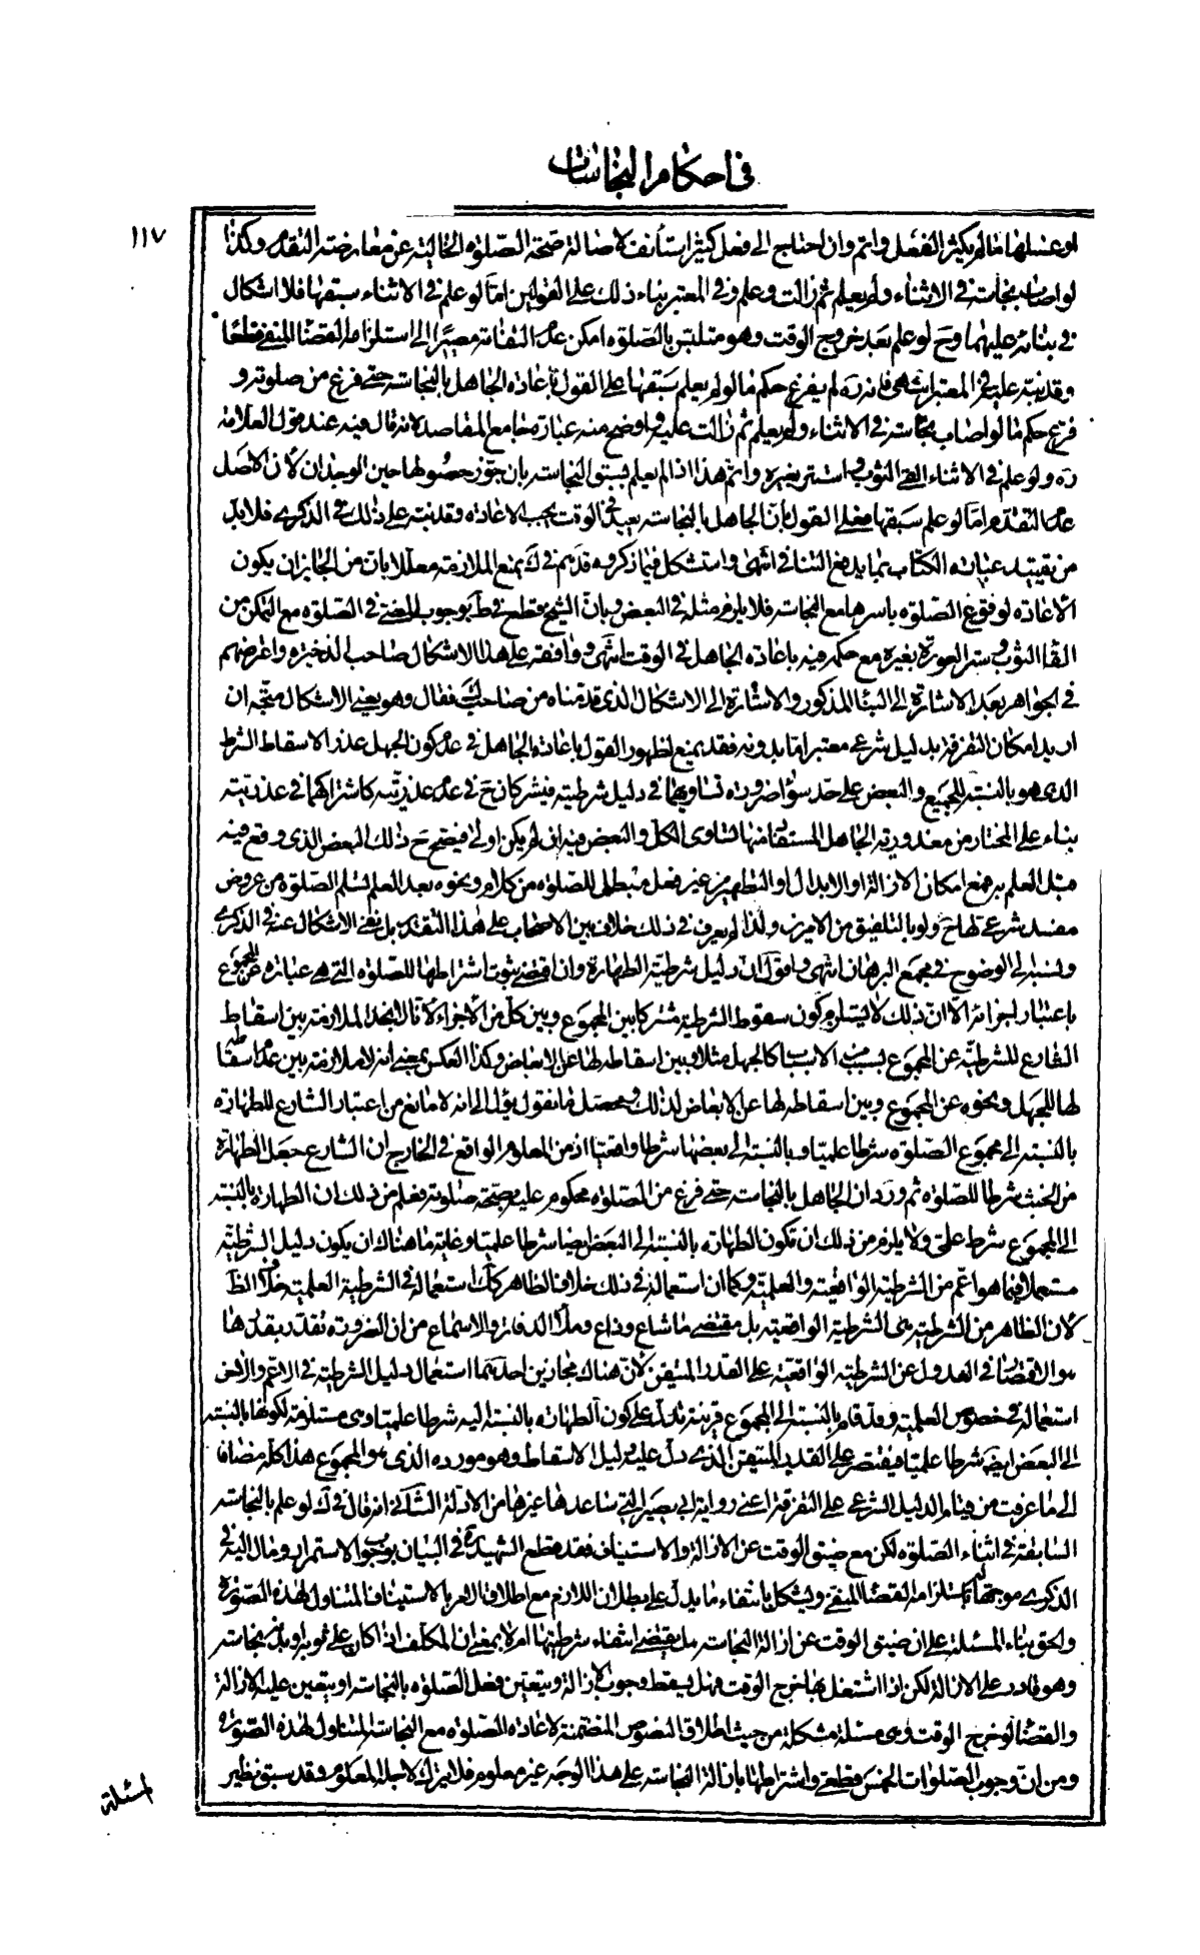 في احكام النجاسات
١١٧
او غسلها ما لم يكثر الفعل واتم وان احتاج الى فعل كثير استأنف لاصالة صحة الصلوة الخالية عن معارضة التقدم وكذا
لو اصابه نجاسة في الاثناء ولم يعلم ثم زالت وعلم وفي المعتبر بناء ذلك على القولين اما لو علم في الاثناء سبقها فلا اشكال
في بنائه عليهما وح لو علم بعد خروج الوقت وهو متلبس بالصلوة امكن عدم التفاته مصيرا الى استلزامه القضاء المنفي قطعا
وقد نبه عليه في المعتبر انتهى فانه ره لم يفرع حكم ما لو لم يعلم سبقها على القول باعادة الجاهل بالنجاسة حتى فرغ من صلوته و
فرع حكم ما لو اصابه نجاسة في الاثناء ولم يعلم ثم زالت عليه واوضح منه عبارة جامع المقاصد لانه قال فيه عند قول العلامة
ره ولو علم في الاثناء القى الثوب واستتر بغيره واتم هذا اذا لم يعلم بسبق النجاسة بان جوز حصولها حين الوجدان لأن الاصل
عدم التقدم اما لو علم سبقها فعلى القول بأن الجاهل بالنجاسة يعيد في الوقت يجب الاعادة وقد نبه على ذلك في الذكرى فلابد
من تقييد عبارة الكتاب بما يدفع التنافي انتهى واستشكل فيما ذكروه قدهم في ك بمنع الملازمة معللا بان من الجائز ان يكون
الاعادة لوقوع الصلوة باسرها مع النجاسة فلا يلزم مثله في البعض وبان الشيخ قطع في ط بوجوب المضي في الصلوة مع التمكن من
القاء الثوب وستر العورة بغيره مع حكمه فيه باعادة الجاهل في الوقت انتهى ووافقه على هذا الاشكال صاحب الذخيرة واعترضهم
في الجواهر بعد الاشارة الى البناء المذكور والاشارة الى الاشكال الذي قدمناه من صاحب ك فقال وهو يعني الاشكال متجه ان
اريد امكان التفرقة بدليل شرعي معتبر اما بدونه فقد يمنع لظهور القول باعادة الجاهل في عدم كون الجهل عذرا لاسقاط الشرط
الذي هو بالنسبة للجميع والبعض على حد سواء ضرورة تساويهما في دليل شرطيته فيشتركان ح في عدم عذريته كاشتراكهما في عذريته
بناء على المختار من معذورية الجاهل المستفاد منها تساوى الكل والبعض فيه ان لم يكن اولى فيصح ح ذلك البعض الذي وقع فيه
قبل العلم به مع امكان الازالة او الابدال او التطهير من غير فعل مبطل للصلوة من كلام ونحوه بعد العلم لتسلم الصلوة من عروض
مفسد شرعي لها ح ولو بالتلفيق من الامرين ولذا لم يعرف في ذلك خلاف بين الاصحاب على هذا التقدير بل نفى الاشكال عنه في الذكرى
ونسبه الى الوضوح في مجمع البرهان انتهى واقول ان دليل شرطية الطهارة وان اقتضى ثبوت اشتراطها للصلوة التي هي عبارة عن المجموع
باعتبار اجزائه الا ان ذلك لا يستلزم كون سقوط الشرطية مشتركا بين المجموع وبين كل من الأجزاء لأنا لا نجد الملازمة بين اسقاط
الشارع للشرطية عن المجموع بسبب من الاسباب كالجهل مثلا وبين اسقاطه لها عن الابعاض وكذا العكس بمعنى انه لا ملازمة بين عدم اسقاطه
لها للجهل ونحوه عن المجموع وبين اسقاطه لها عن الابعاض لذلك ومحصل ما نقول يؤل الى انه لا مانع من اعتبار الشارع للطهارة
بالنسبة الى مجموع الصلوة شرطا علميا وبالنسبة الى بعضها شرطا واقعيا اذ من المعلوم الواقع في الخارج ان الشارع جعل الطهارة
من الخبث شرطا للصلوة ثم ورد ان الجاهل بالنجاسة حتى فرغ من الصلوة محكوم عليه بصحة صلوته فعلم من ذلك ان الطهارة بالنسبة
الى المجموع شرط علمي ولا يلزم من ذلك ان تكون الطهارة بالنسبة الى البعض ايضا شرطا علميا وغاية ما هناك ان يكون دليل الشرطية
مستعملا فيما هو اعم من الشرطية الواقعية والعلمية وكما ان استعماله في ذلك خلاف الظاهر كذلك استعماله في الشرطية العلمية خلاف الظ
لان الظاهر من الشرطية هي الشرطية الواقعية بل مقتضى ما شاع وذاع وملأ الدفاتر والاسماع من ان الضرورة تقدر بقدرها
هو الاقتصار في العدول عن الشرطية الواقعية على القدر المتيقن لأن هناك مجازين احدهما استعمال دليل الشرطية في الاعم والاخر
استعماله في خصوص العلمية وقد قام بالنسبة الى المجموع قرينة تدل على كون الطهارة بالنسبة اليه شرطا علميا وهي مستلزمة لكونها بالنسبة
الى البعض ايضا شرطا علميا فيقتصر على القدر المتيقن الذي دل عليه دليل الاسقاط وهو مورده الذي هو المجموع هذا كله مضافا
الى ما عرفت من قيام الدليل الشرعي على التفرقة اعني رواية ابي بصير التي ساعدها غيرها من الادلة الثاني انه قال في ك لو علم بالنجاسة
السابقة في اثناء الصلوة لكن مع ضيق الوقت عن الازالة والاستيناف فقد قطع الشهيد ره في البيان بوجوب الاستمرار ومال اليه في
الذكرى موجها باستلزامه القضاء المنفي ويشكل بانتفاء ما يدل على بطلان اللازم مع اطلاق الامر بالاستيناف المتناول لهذه الصورة
والحق بناء المسئلة على ان ضيق الوقت عن ازالة النجاسة هل يقتضى انتفاء شرطيتها ام لا بمعنى ان المكلف اذا كان على ثوبه او بدنه نجاسة
وهو قادر على الازالة لكن اذا اشتغل بها خرج الوقت فهل يسقط وجوب الازالة ويتعين فعل الصلوة بالنجاسة او يتعين عليه الازالة
والقضاء لو خرج الوقت وهي مسئلة مشكلة من حيث اطلاق النصوص المتضمنة لاعادة الصلوة مع النجاسة المتناول لهذه الصورة
ومن ان وجوب الصلوات الخمس قطعي واشتراطها بازالة النجاسة على هذا الوجه غير معلوم فلا يترك لاجله المعلوم وقد سبق نظير
المسئلة